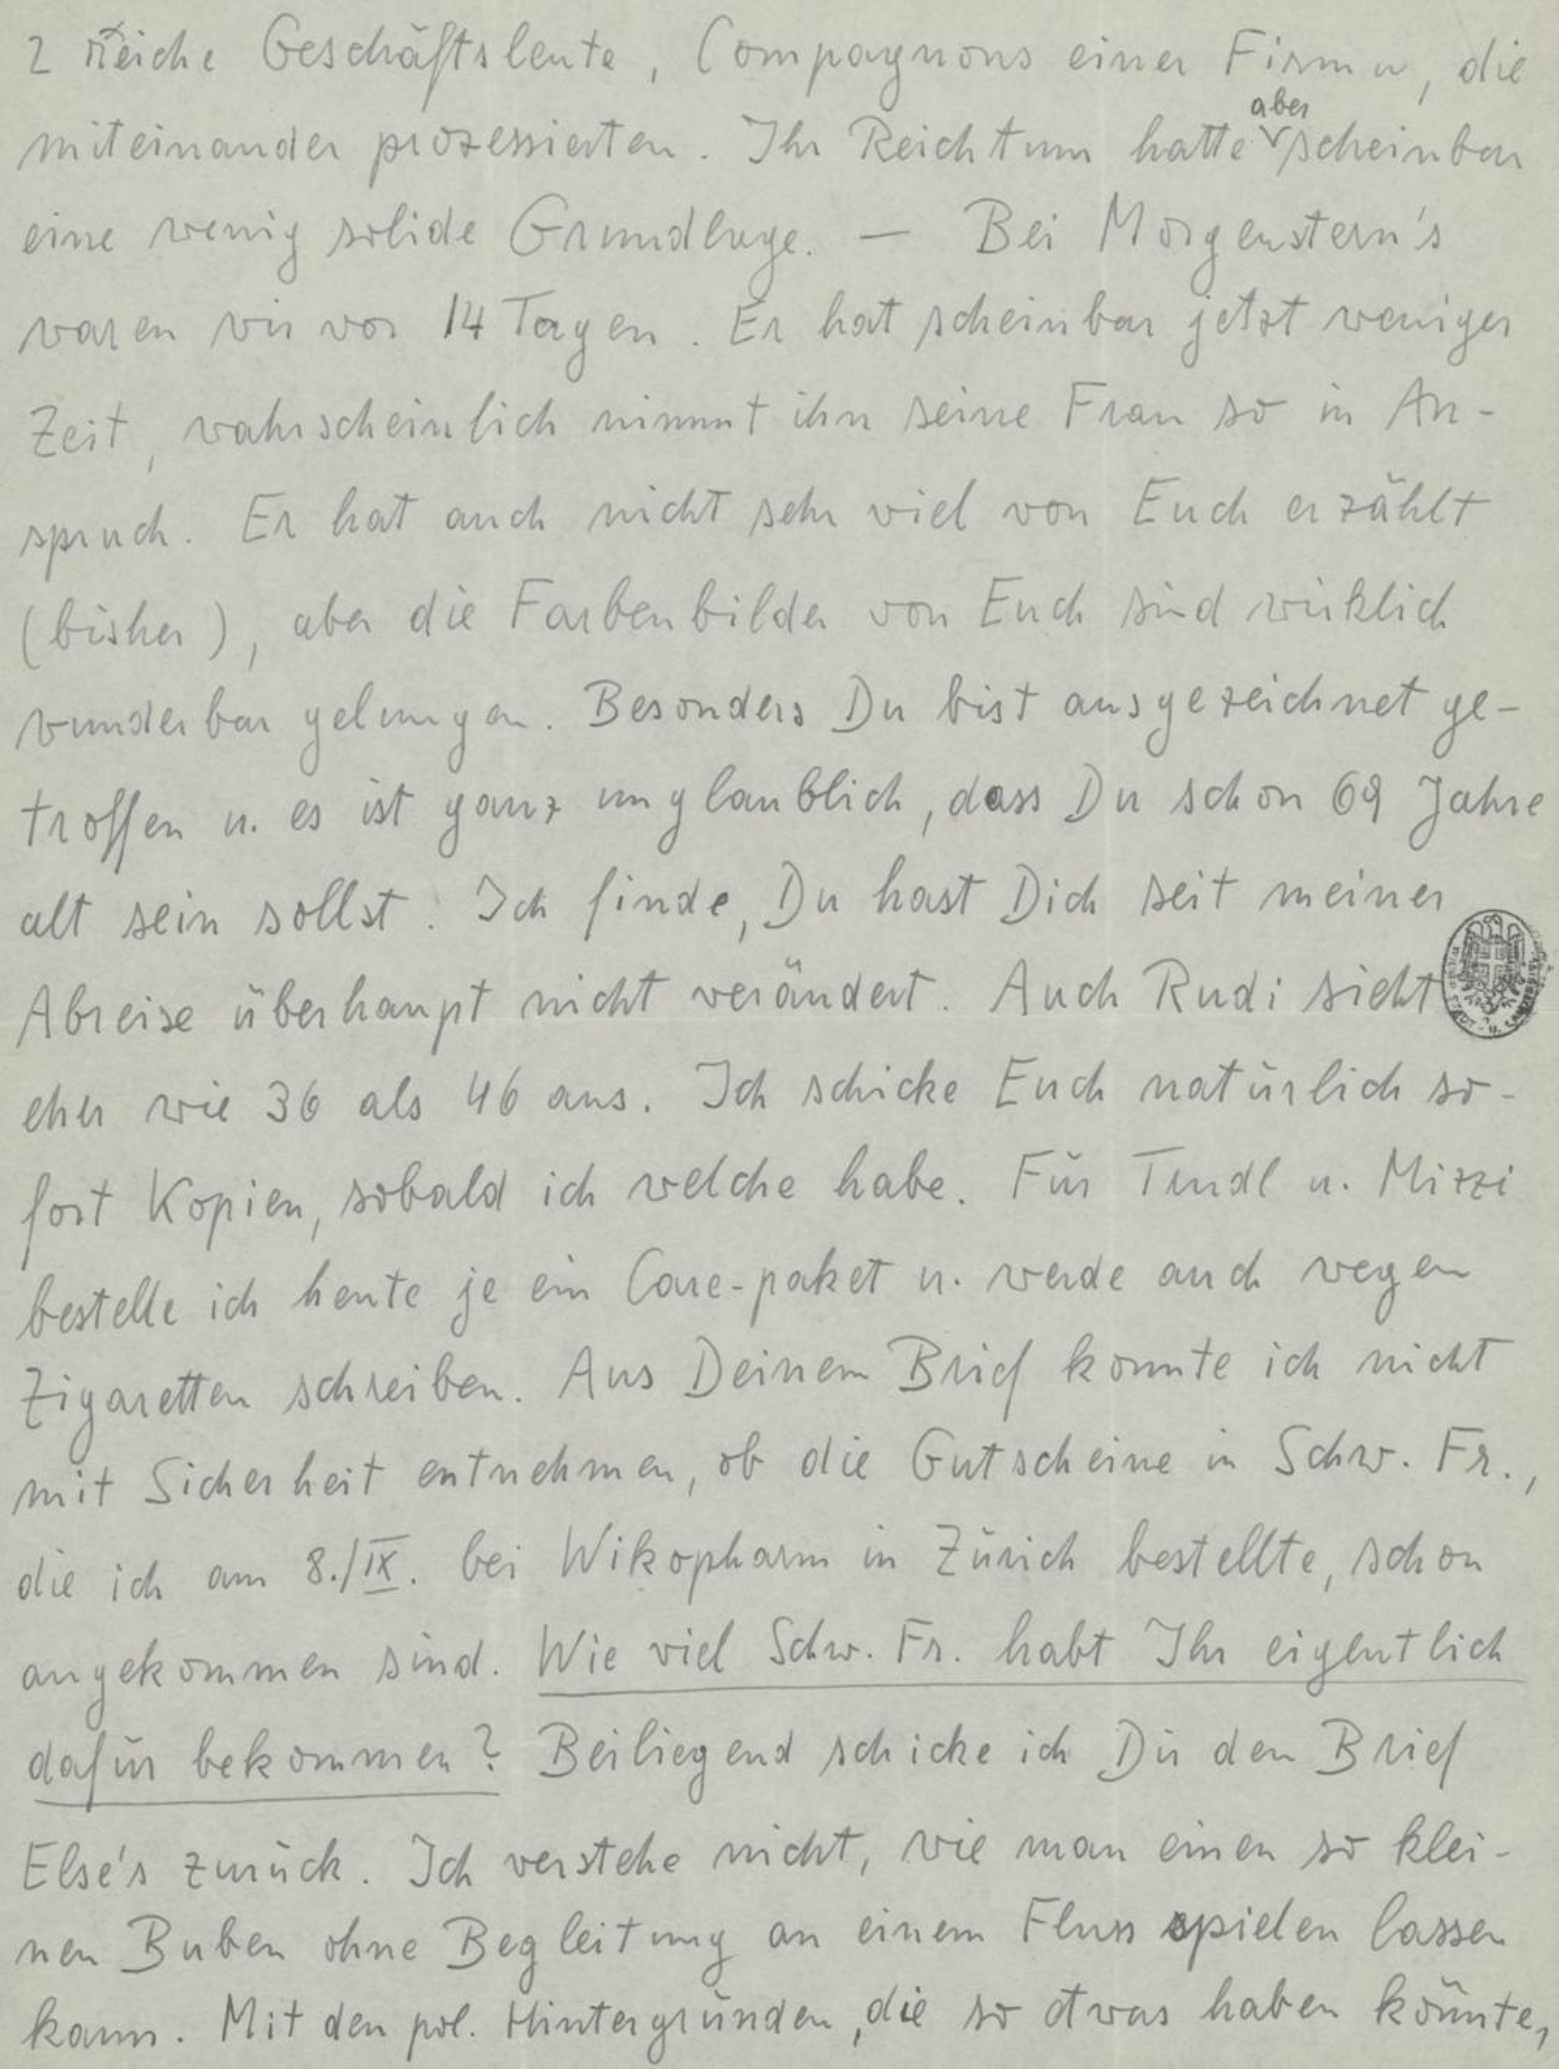 2 reiche Geschäftsleute, Compagnons einer Firma, die
miteinander prozessierten. Ihr Reichtum hatte aber scheinbar
eine wenig solide Grundlage. — Bei Morgenstern's
waren wir vor 14 Tagen. Er hat scheinbar jetzt weniger
Zeit, wahrscheinlich nimmt ihn seine Frau so in An-
spruch. Er hat auch nicht sehr viel von Euch erzählt
(bisher), aber die Farbenbilder von Euch sind wirklich
wunderbar gelungen. Besonders Du bist ausgezeichnet ge-
troffen u. es ist ganz unglaublich, dass Du schon 69 Jahre
alt sein sollst. Ich finde, Du hast Dich seit meiner
Abreise überhaupt nicht verändert. Auch Rudi sieht
eher wie 36 als 46 aus. Ich schicke Euch natürlich so-
fort Kopien, sobald ich welche habe. Für Trudl u. Mizzi
bestelle ich heute je ein Care-paket u. werde auch wegen
Zigaretten schreiben. Aus Deinem Brief konnte ich nicht
mit Sicherheit entnehmen, ob die Gutscheine in Schw. Fr.,
die ich am 8./IX. bei Wikopharm in Zürich bestellte, schon
angekommen sind. Wie viel Schw. Fr. habt Ihr eigentlich
dafür bekommen? Beiliegend schicke ich Dir den Brief
Else's zurück. Ich verstehe nicht, wie man einen so klei-
nen Buben ohne Begleitung an einem Fluss spielen lassen
kann. Mit den pol. Hintergründen, die so etwas haben könnte,